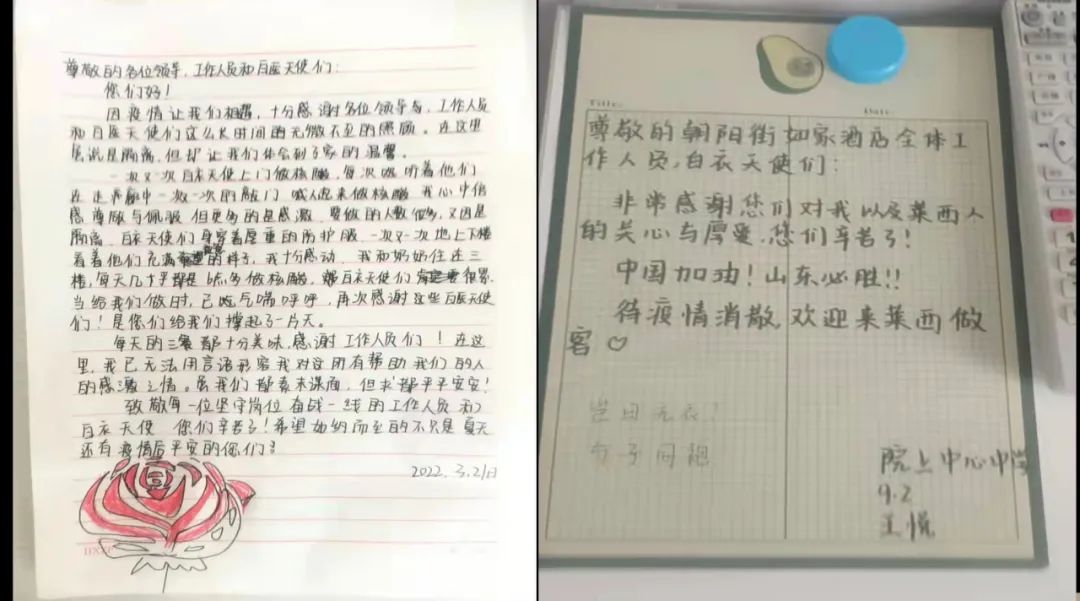 尊敬的各位领导,工作人员和白衣天使们:
您们好!
因疫情让我们相遇,十分感谢各位领导者,工作人员
和白衣天使们这么长时间的无微不至的照顾。在这里
虽说是隔离,但却让我们体会到了家的温馨。
一次又次白衣天使上门做核酸,每次听着他们
在走廊中一次一次的敲门 喊人起来做核酸 我心中倍
感尊敬与佩服 但更多的是感激。要做的人数多,又因是
隔离、白衣天使们身穿着厚重的防护服 一次又一次地上下楼
看着他们充满的样子,我十分感动、我和奶奶住在三
楼,每天几乎都是点多做核酸,白衣天使们很累
当给我们做时,已吃气喘呼呼,再次感谢这些白衣天使
们!是您们给我们撑起了一片天。
每天的三餐都十分美味,感谢工作人员们!在这
里,我已无法用言语形容我对这团有帮助我们的人
的感激之情。虽我们都素未谋面,但求都平平安安!
致敬每一位坚守岗位 奋战一线的工作人员 和
白衣天使 您们辛苦了!希望如约而至的不只是夏天
还有疫情后平安的你们
2022.3.21日
Title:
Date:
尊敬的朝阳街如家酒店全体工
作人员,白衣天使们:
非常感谢,您们对我以及莱西人
的关心与厚爱,您们辛苦了!
中国加油!山东必胜!!
待疫情消散,欢迎来莱西做
客♡
岂曰无衣?
与子同袍
院上中心中学
9.2
王悦